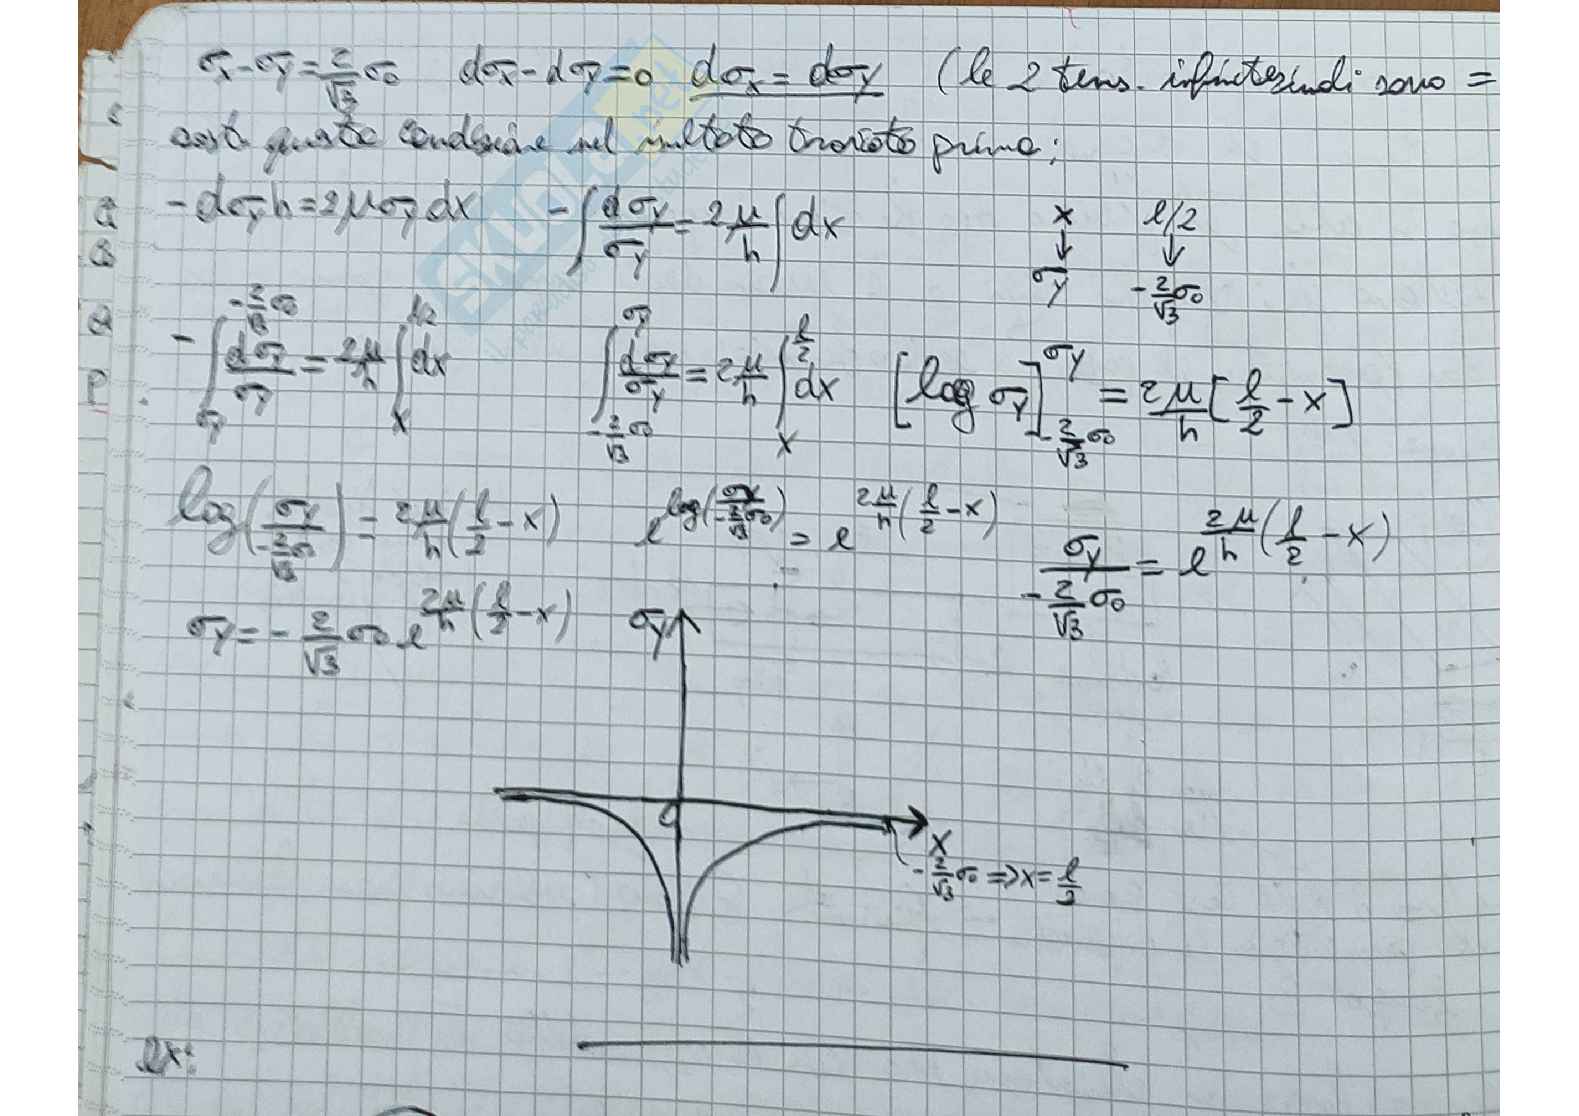 σx-σy=2/√3 σ0 dσx-dσy=0 dσx=dσy (le 2 tens. infinitesimali sono =
sost. questa condizione nel risultato trovato prima:
-dσy h=2μσy dx -∫dσy/σy=2μ/h∫dx x l/2
↓ ↓
σy -2/√3 σ0
-∫_{σy}^{-2/√3 σ0} dσy/σy=2μ/h∫_{x}^{l/2} dx ∫_{-2/√3 σ0}^{σy} dσy/σy=2μ/h∫_{x}^{l/2} dx [log σy]_{-2/√3 σ0}^{σy}=2μ/h[l/2-x]
log(σy/(-2/√3 σ0))=2μ/h(l/2-x) e^{log(σy/(-2/√3 σ0))}=e^{2μ/h(l/2-x)} σy/(-2/√3 σ0)=e^{2μ/h(l/2-x)}
σy=-2/√3 σ0 e^{2μ/h(l/2-x)} σy
x
-2/√3 σ0 => x=l/2
ex: